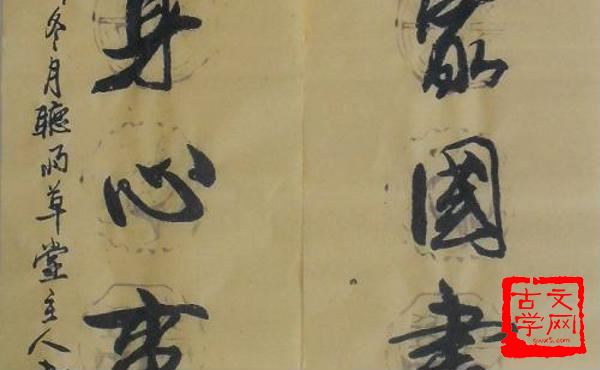 國書
身心事
冬月聽雨草堂主人
古文学网
gwx5.com